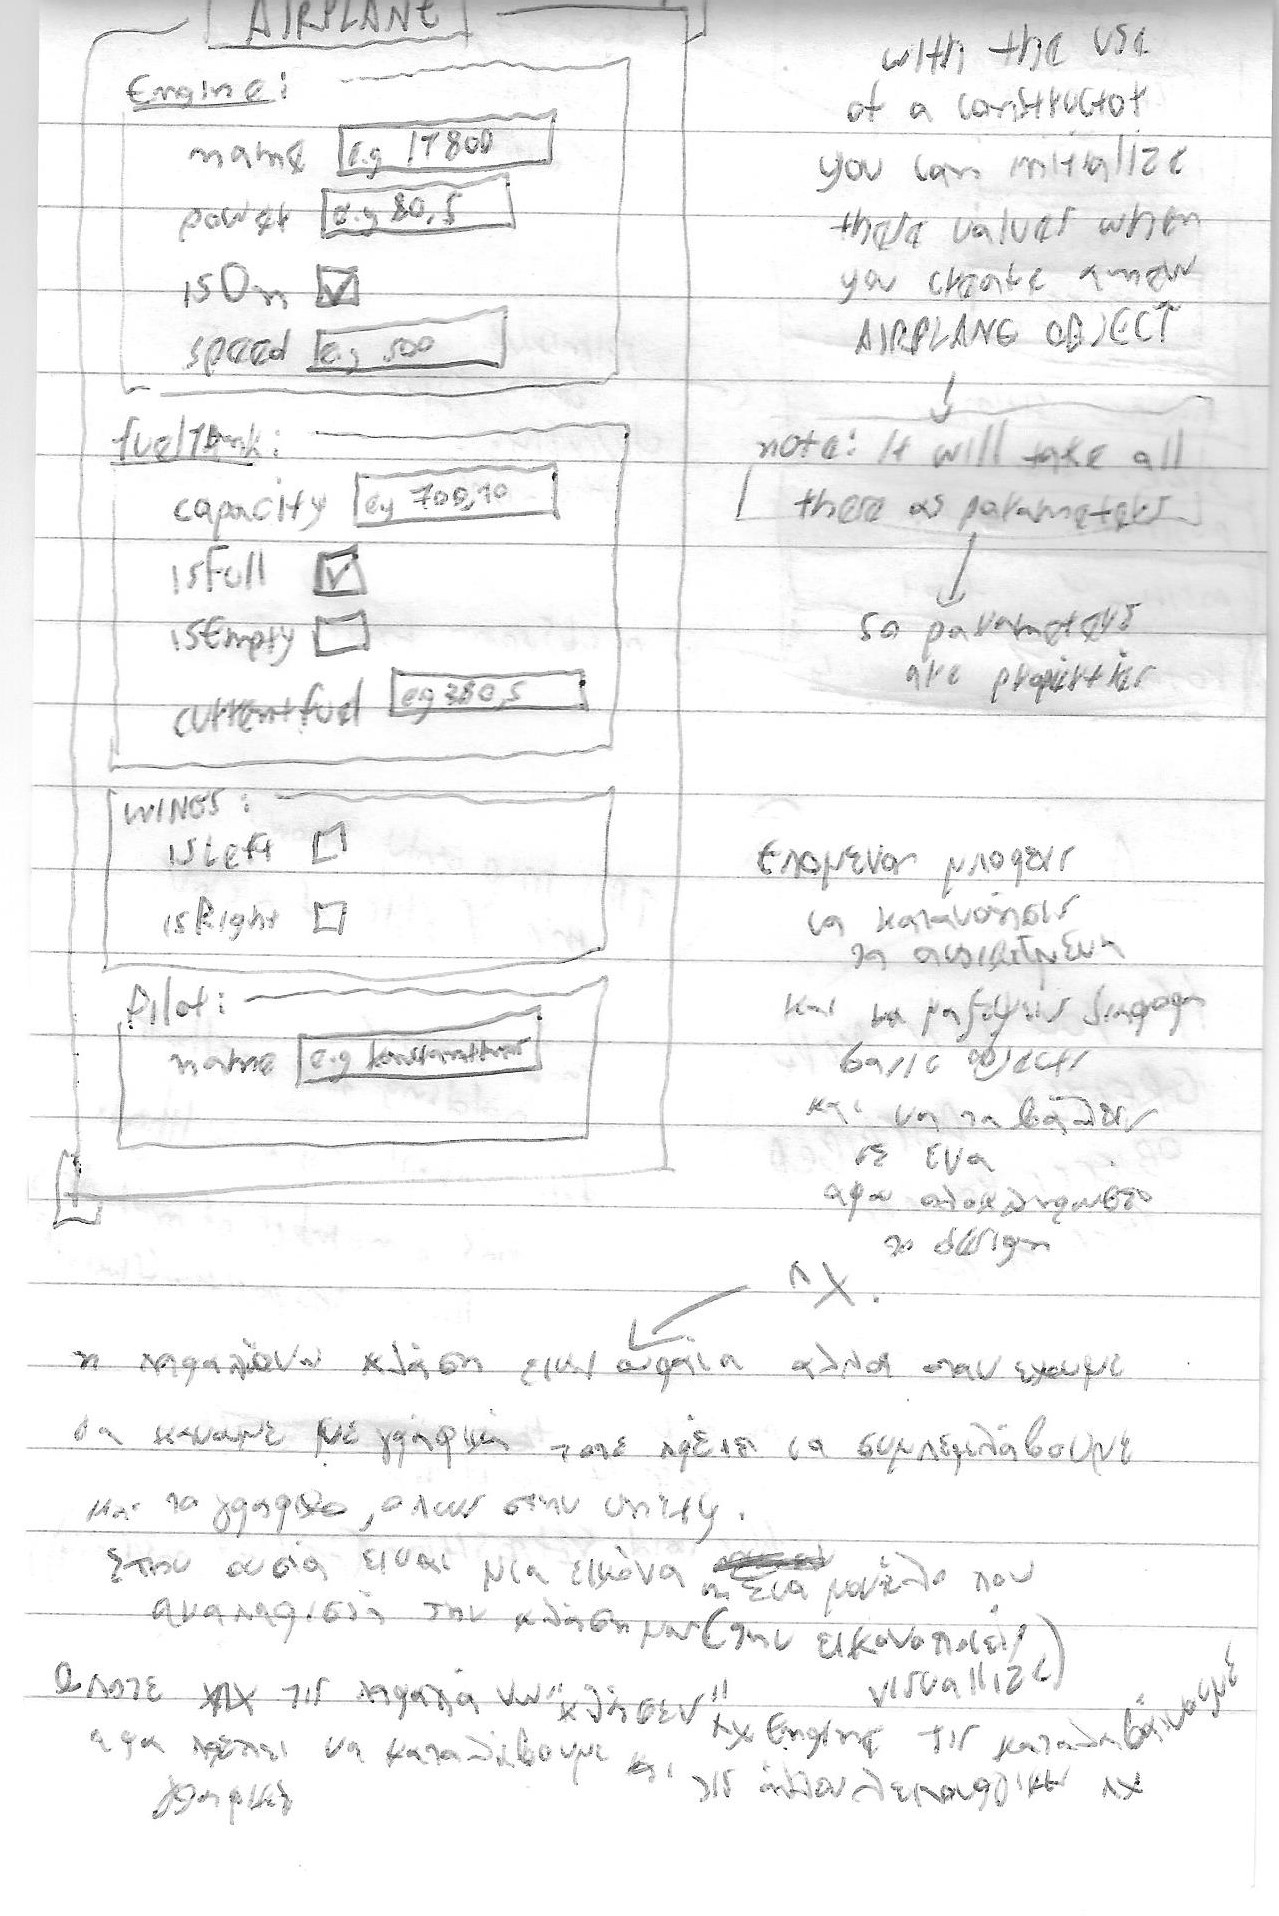 AIRPLANE
Engine:
name e.g IT800
power e.g 80,5
isOn
speed e.g 500
fuelTank:
capacity eg 700,70
isFull
isEmpty
currentfuel eg 380,5
WINGS:
isLeft
isRight
Pilot:
name e.g konstantinos
with the use
of a constructor
you can initialize
these values when
you create a new
AIRPLANE OBJECT
note: It will take all
these as parameters
so parameters
are properties
Επομενως μπορεις
να κατανοησεις
τα αντικειμενα
και να μαζεψεις διαφορα
basic objects
και να τα βάλεις
σε ενα
αφου ολοκληρωσεις
το design
πχ.
η παραπάνω κλάση ειναι ωραία αλλα οταν εχουμε
να κανουμε με γραφικά τοτε πρέπει να συμπεριλάβουμε
και το γραφικο, οπως στην unity.
Στην ουσία ειναι μια εικόνα η ενα μοντελο που
αναπαριστά την κλάση μας (την εικονοποιεί/
visuallize)
Οποτε τις παραπάνω "κλάσεις" πχ Engine τις καταλαβαίνουμε
αρα πρέπει να καταλάβουμε και τις άλλες λειτουργικες πχ
γραφικές